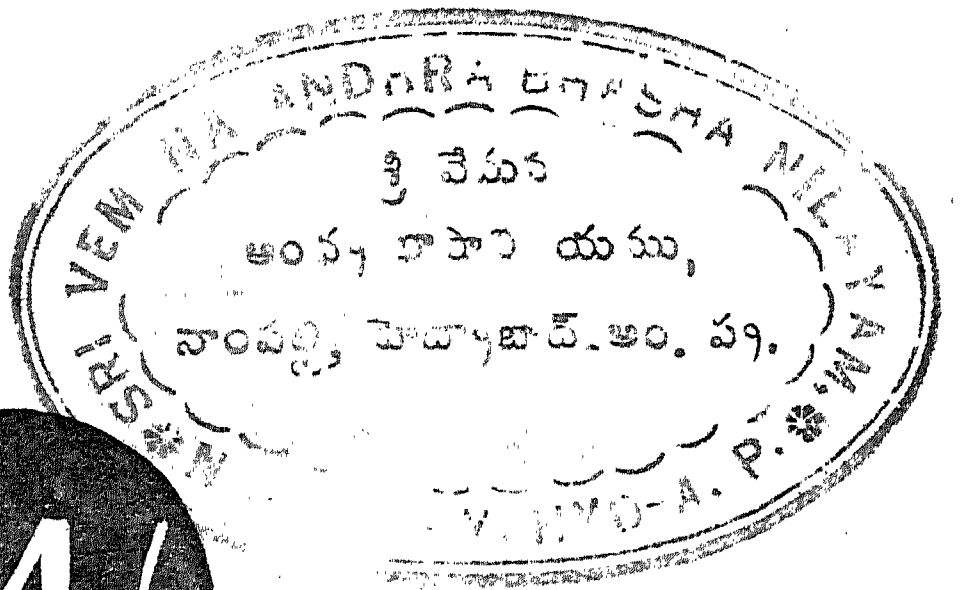 SRI VEMANA ANDHRA BHASHA NILAYAM,
శ్రీ వేమన
ఆంధ్ర భాషా నిలయము,
నాంపల్లి, హైద్రాబాద్-ఆం. ప్ర.
HYD-A. P.